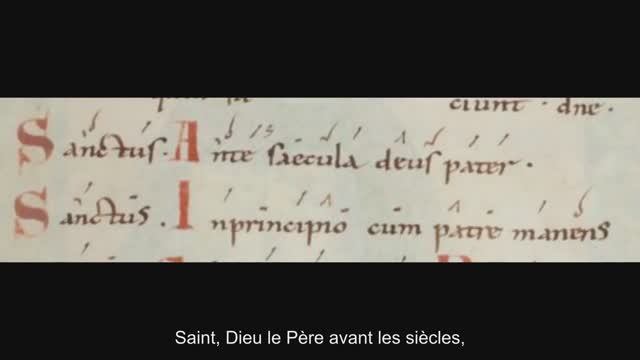 ciunt · dne ·
Sanctus. Ante saecula deus pater ·
Sanctus. Inprincipio cum patre manens
Saint, Dieu le Père avant les siècles,